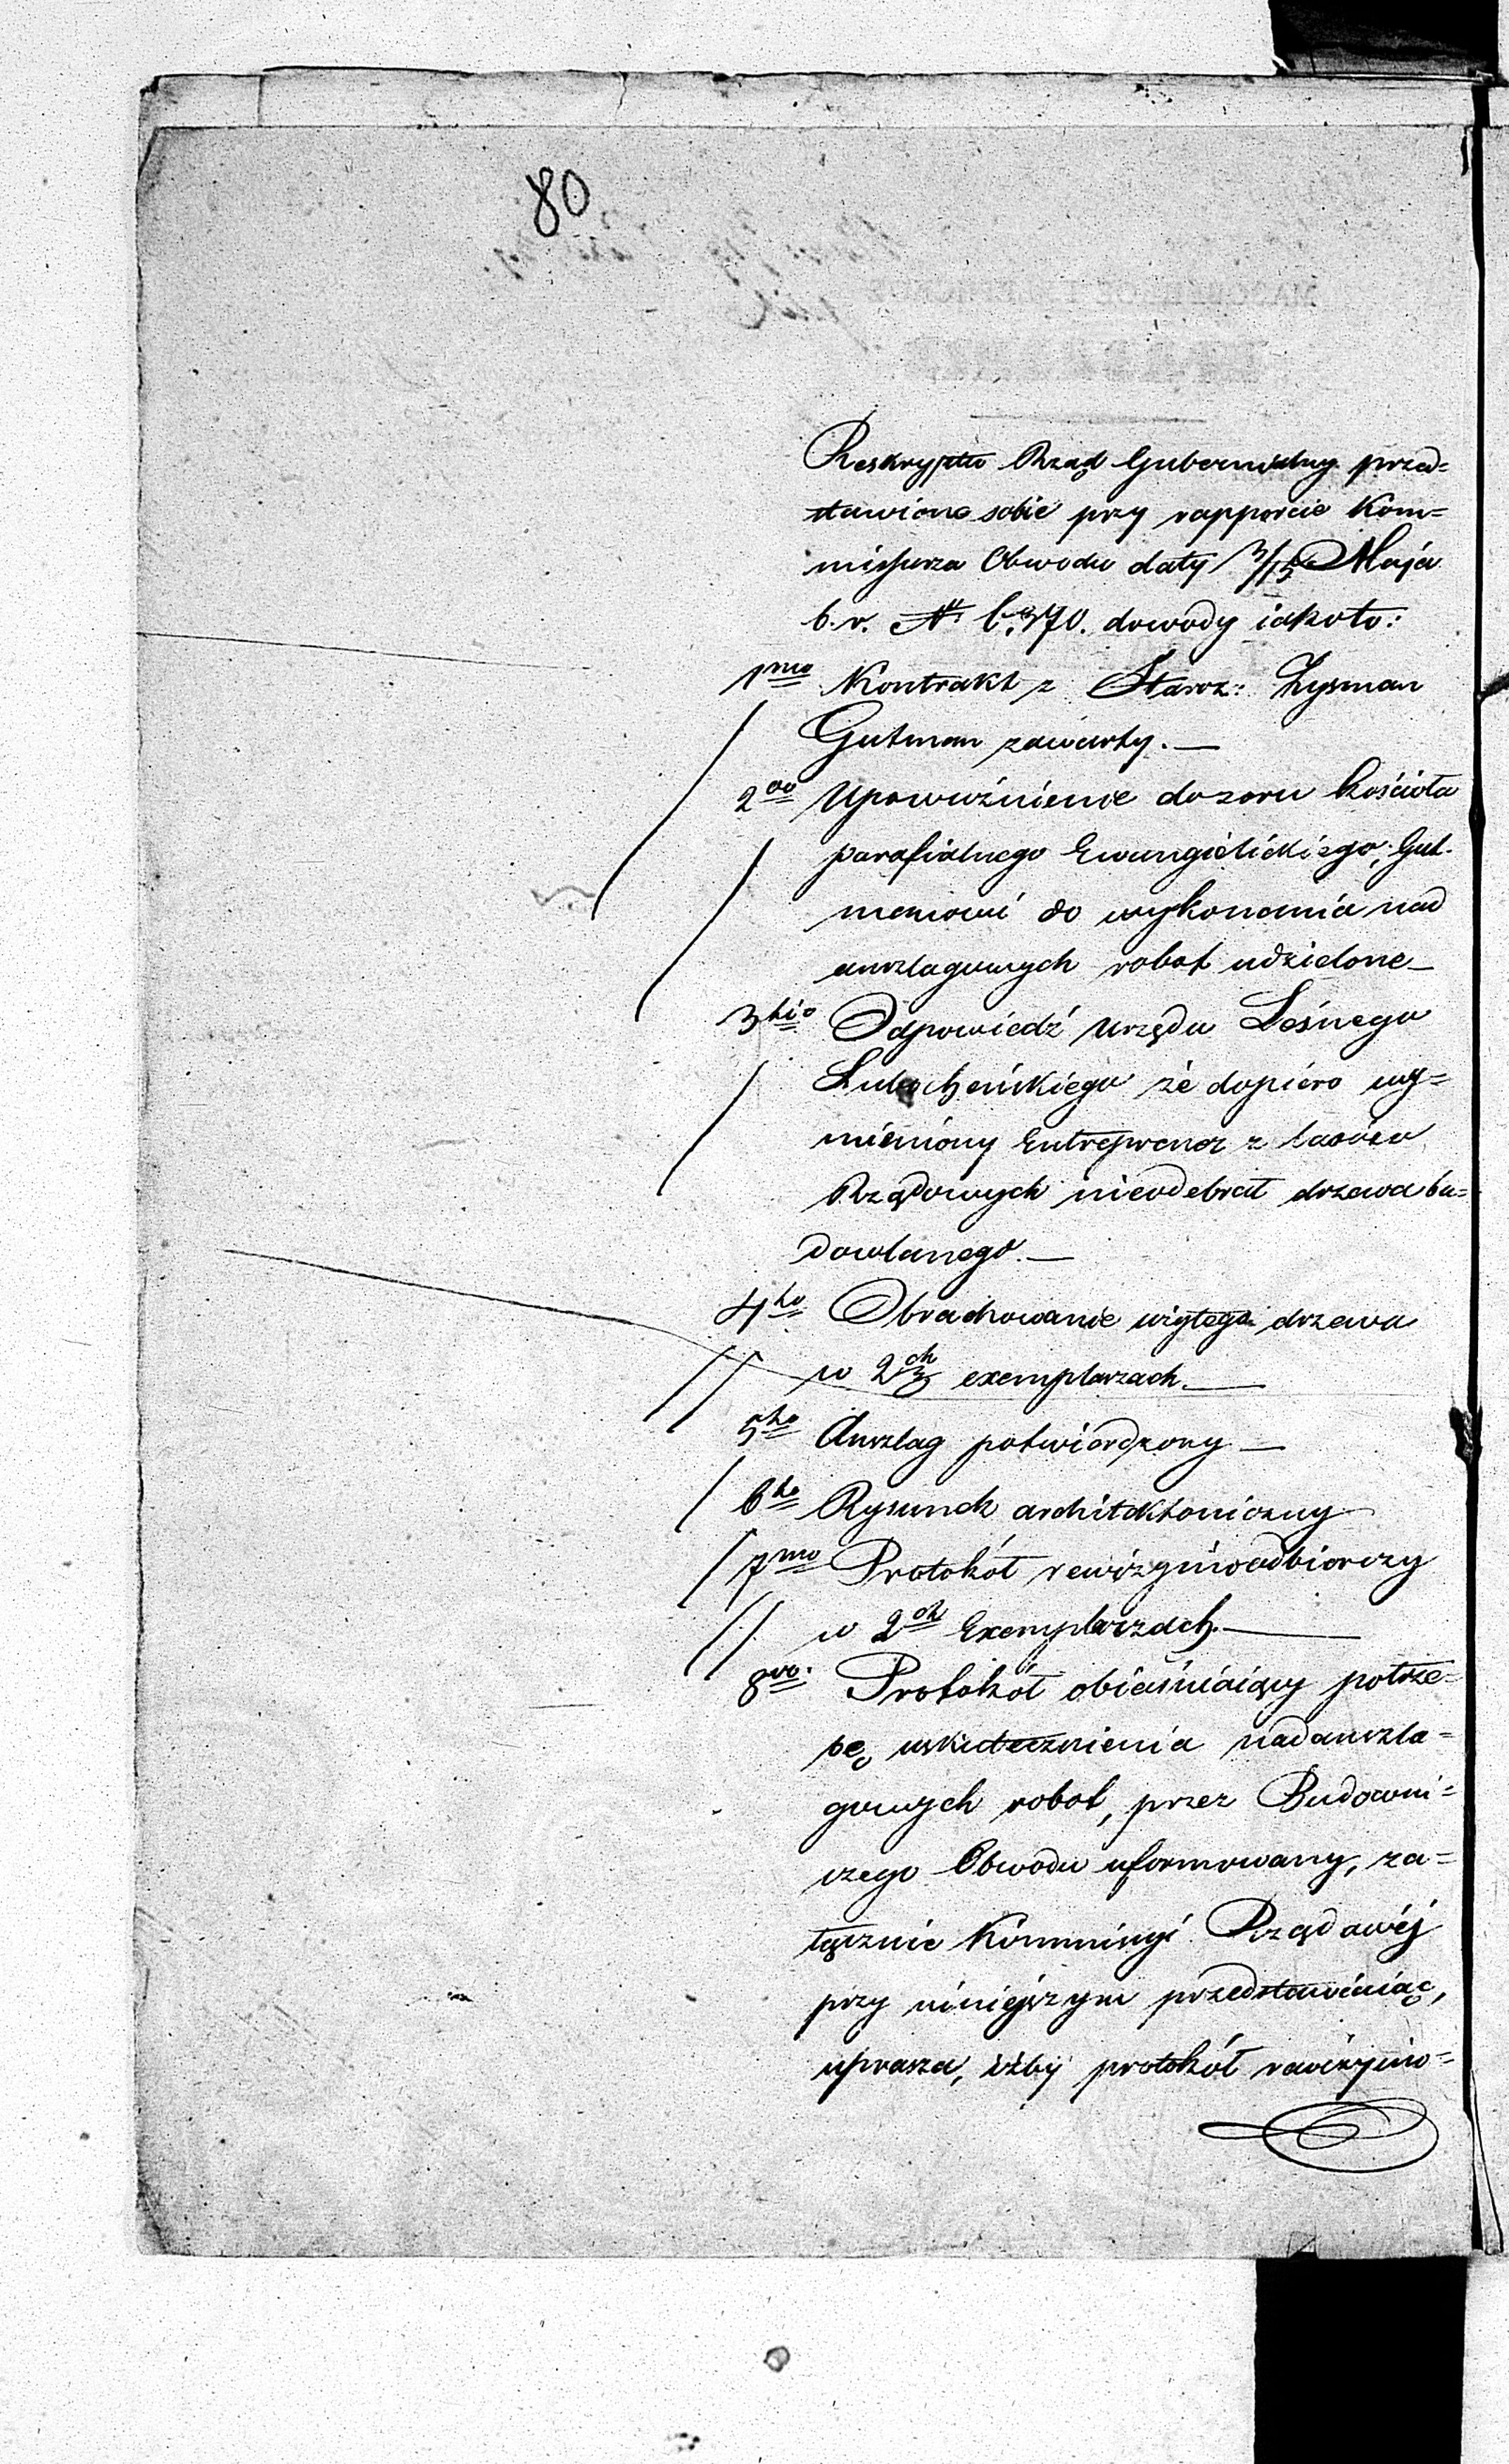 80
Reskryptu Rząd Gubernialny przed=
stawione sobie przy rapporcie Kom=
missarza Obwodu daty 3/15 Maja
b. r. N 6,370. dowody iakoto:
1mo Kontrakt z Staroz: Zysman
Gutman zawarty. —
2do Upoważnienie dozoru kościoła
parafialnego Ewangielickiego, Gut-
manowi do wykonania nad
anszlagowych robot udzielone —
3tio Odpowiedź Urzędu Leśnego
Lubocheńskiego że dopiero wy=
mieniony Entreprener z lasów
Rządowych nieodebrał drzewa bu=
dowlanego. —
4to Obrachowanie wziętego drzewa
w 2ch exemplarzach. —
5to Anszlag potwierdzony —
6to Rysunek architektoniczny
7mo Protokół rewizyinoodbiorczy
w 2ch Exemplarzach. —
8vo. Protokół obiaśniaiący potrze=
bę uskutecznienia nadanszla=
gowych robot, przez Budowni=
czego Obwodu uformowany, za=
łącznie Kommissyi Rządowéj
przy niniejszym przedstawiaiąc,
uprasza, iżby protokół rewizyino=